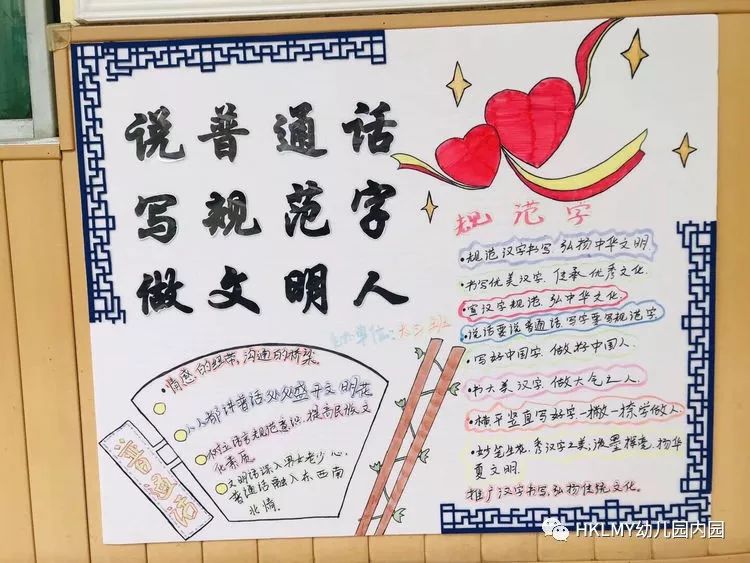 说普通话
写规范字
做文明人
主办单位:大三班
规范字
•规范汉字书写 弘扬中华文明.
•书写优美汉字. 传承优秀文化.
•写汉字规范. 弘中华文化.
•说话要说普通话 写字要写规范字
•写好中国字. 做好中国人.
•书大美汉字 做大气之人.
•横平竖直写好字 一撇一捺学做人
•妙笔生花, 秀汉字之美, 流墨挥毫, 扬华
夏文明.
推广汉字书写, 弘扬传统文化.
•情感的纽带, 沟通的桥梁.
人人都讲普话处处盛开文明花
树立语言规范意识. 提高民族文
化素质.
文明话深入男女老少心.
普通话融入东西南
北情.
普通话
HKLMY幼儿园内园